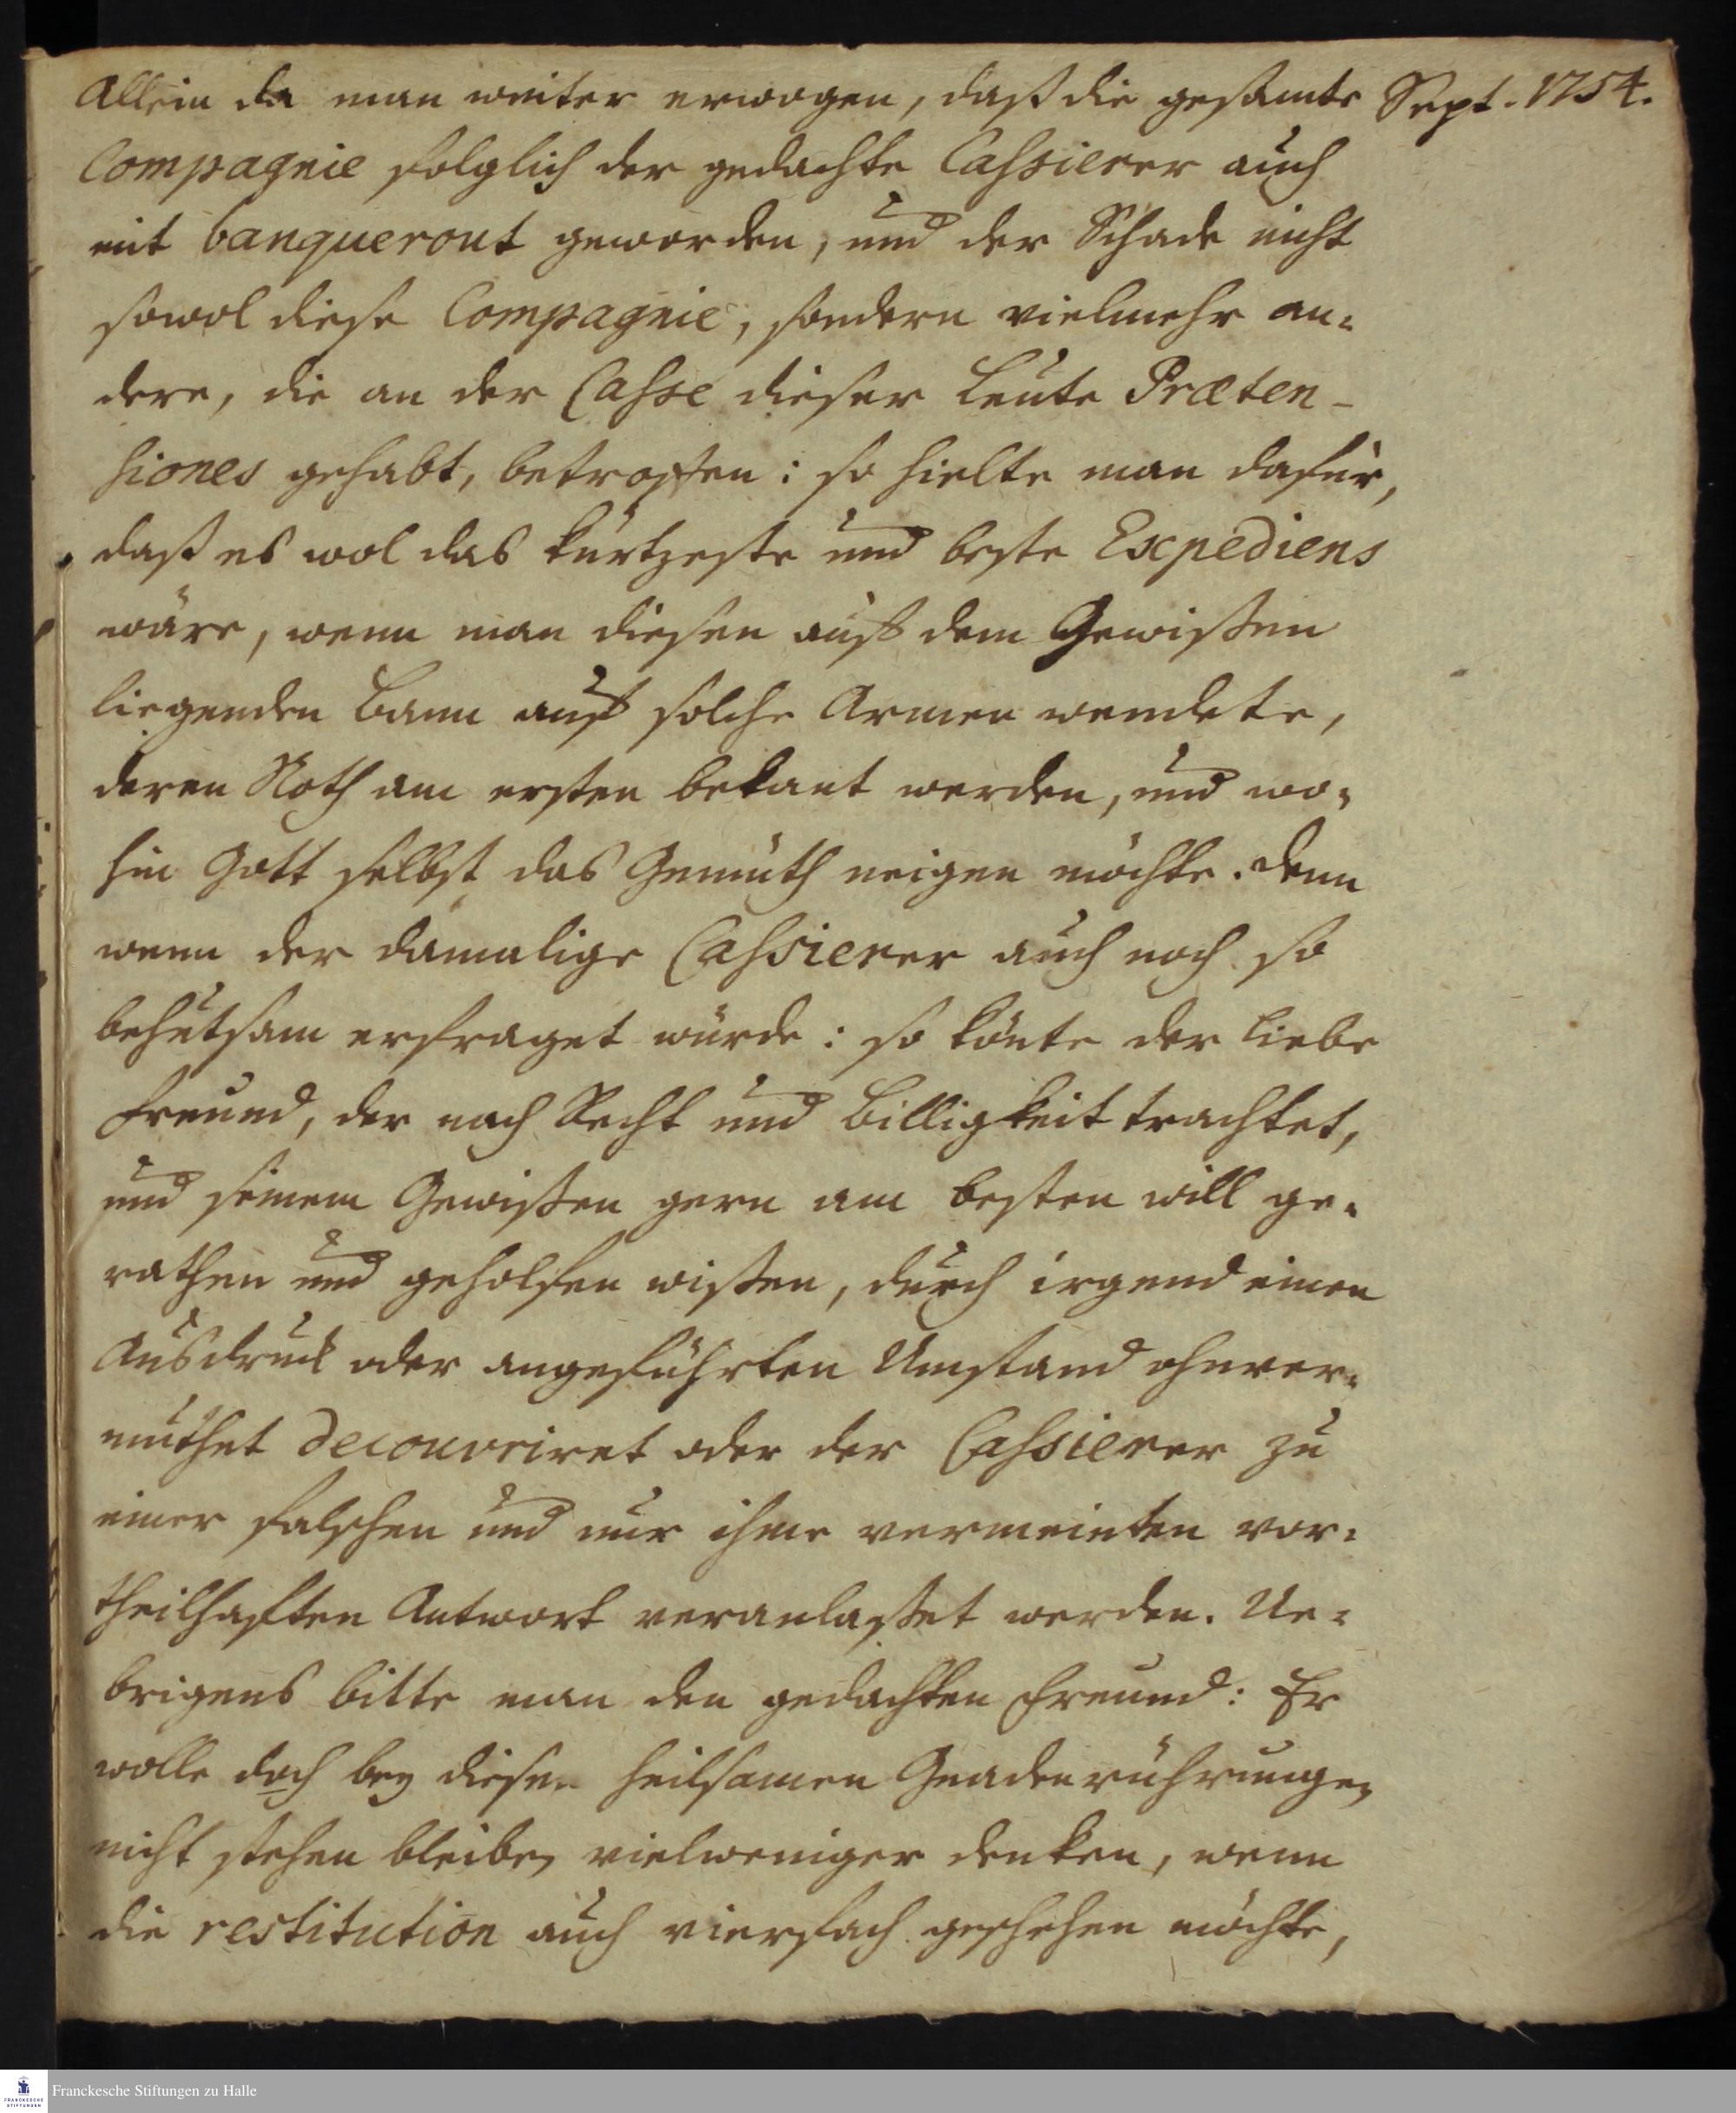 Allein da man weiter erwogen, daß die gesamte Sept. 1754.
Compagnie folglich der gedachte Cassierer auch
mit banquerout geworden, und der Schade nicht
sowol diese Compagnie, sondern vielmehr an-
dere, die an der Casse dieser Leute Præten-
siones gehabt, betroffen: so hielte man dafür,
daß es wol das kürtzeste und beste Expediens
wäre, wenn man diesen auf dem Gewißen
liegenden Bann auf solche Armen wendete,
deren Noth am ersten bekant werden, und wo-
hin Gott selbst das Gemüth neigen möchte. Denn
wenn der damalige Cassierer auch noch so
behutsam erfraget würde: so könte der liebe
Freund, der nach Recht und Billigkeit trachtet,
und seinem Gewißen gern am besten will ge-
rathen und geholfen wißen, durch irgend einen
Ausdruck oder angeführten Umstand ohnver-
muthet decouvriret oder der Cassierer zu
einer falschen und nur ihme vermeinten vor-
theilhaften Antwort veranlaßet werden. Ue-
brigens bitte man den gedachten Freund: Er
wolle doch bey diesen heilsamen Gnadenrührungen
nicht stehen bleiben vielweniger denken, wenn
die restitution auch vierfach geschehen möchte,
Franckesche Stiftungen zu Halle